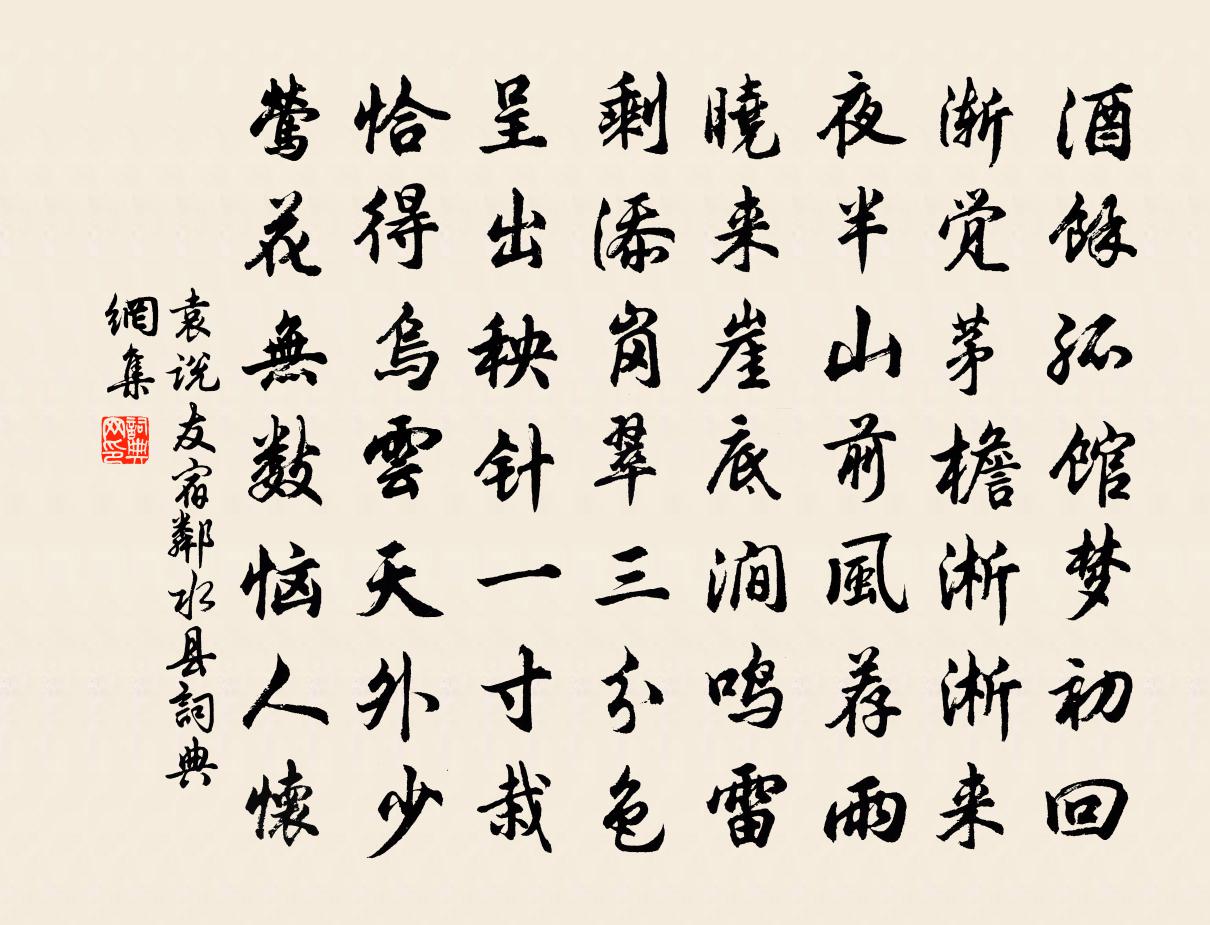 酒餘孤馆梦初回
渐觉茅檐淅淅来
夜半山前風荐雨
曉来崖底涧鸣雷
剩添岗翠三分色
呈出秧针一寸栽
恰得烏雲天外少
莺花無数恼人懷
袁说友宿鄰水县詞典
網集
詞典
网印